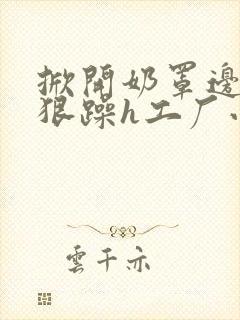 掀開奶罩邊
狠躁h工厂
雲千亦